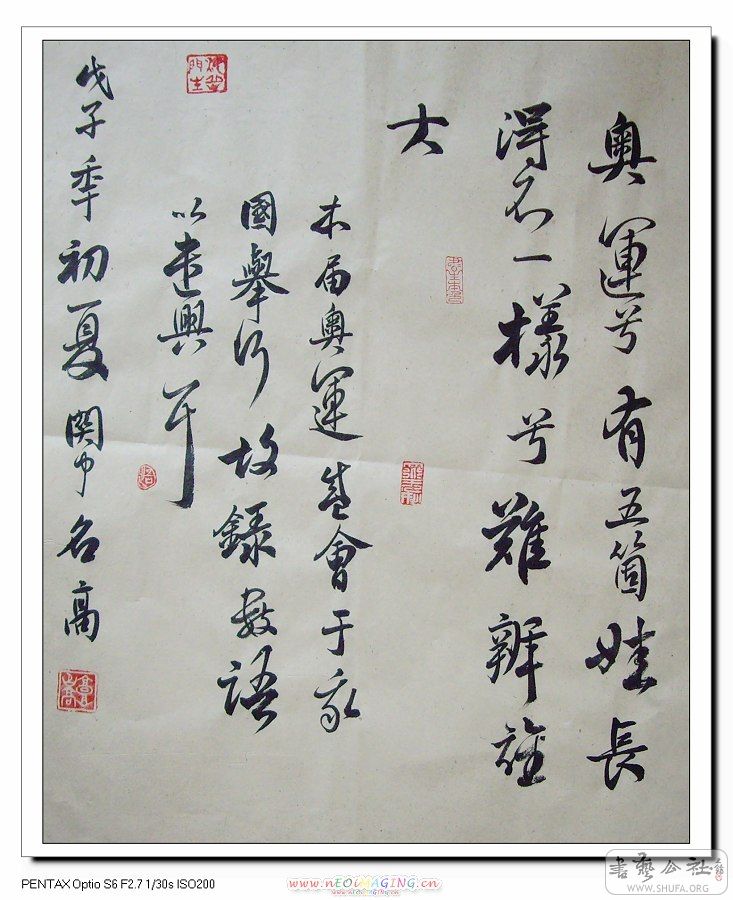 奥運兮有五箇娃長
得不一樣兮難辨誰
大
本届奥運盛會于我
國舉行故録數語
以遣興耳
戊子季初夏関中名高
門生
書藝公社
WWW.SHUFA.ORG
PENTAX Optio S6 F2.7 1/30s ISO200
www.nEOiMAGING.cn